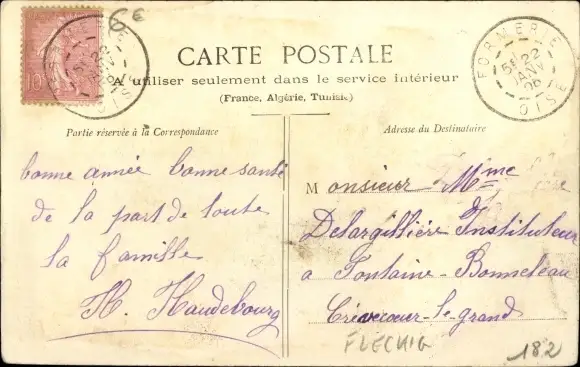 CARTE POSTALE
A utiliser seulement dans le service intérieur
(France, Algérie, Tunisie)
Partie réservée à la Correspondance
bonne année bonne santé
de la part de toute
la famille
H. Haudebourg
Adresse du Destinataire
Monsieur Mme
Delargillière Instituteur
a Fontaine-Bonneleau
Crèvecoeur-le-grand
FLECHIG
182
FORMERIE
5E 22
JANV
06
OISE
10
€